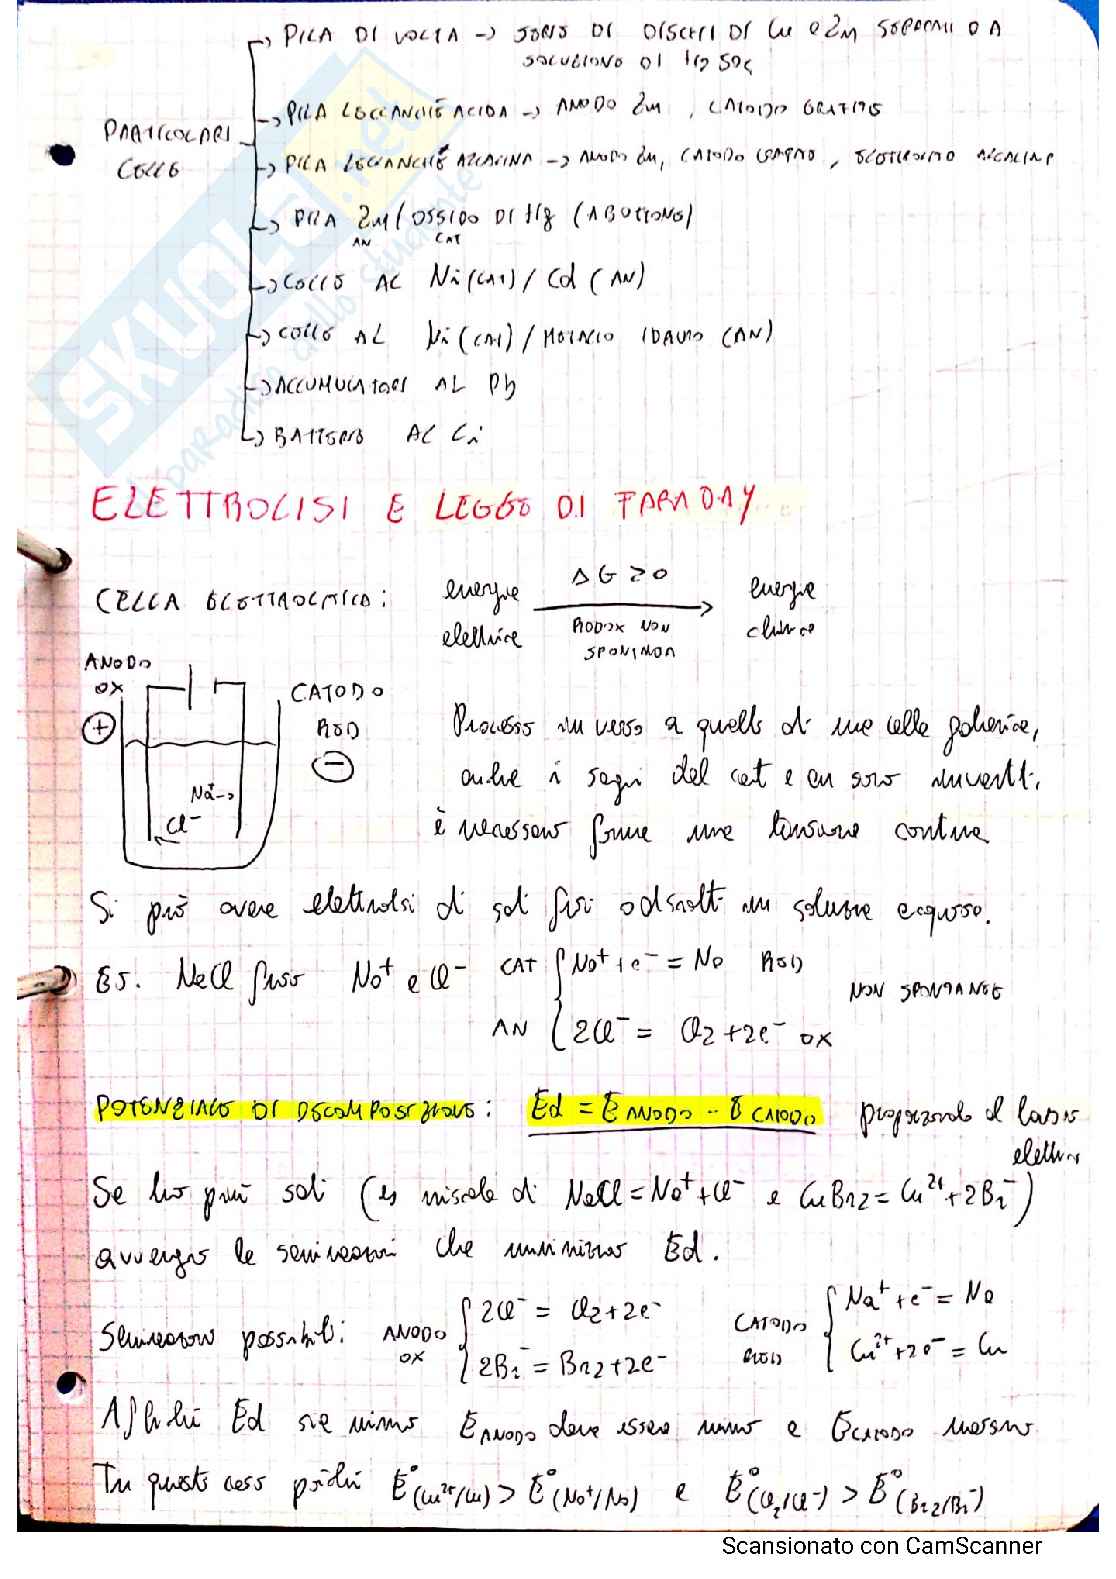 PARTICOLARI CELLE
→ PILA DI VOLTA → SERIE DI DISCHI DI Cu e Zn SEPARATI DA
SOLUZIONE DI H2SO4
→ PILA LECLANCHÉ ACIDA → ANODO Zn, CATODO GRAFITE
→ PILA LECLANCHÉ ALCALINA → ANODO Zn, CATODO GRAFITE, ELETTROLITO ALCALINO
→ PILA Zn/OSSIDO DI Hg (A BOTTONE)
AN CAT
→ CELLE AL Ni(CAT) / Cd (AN)
→ CELLE AL Ni(CAT) / METALLO IDRURO (AN)
→ ACCUMULATORI AL Pb
→ BATTERIE AL Li
ELETTROLISI E LEGGE DI FARADAY
CELLA ELETTROLITICA: energia elettrica ΔG>0 REDOX NON SPONTANEA energia chimica
ANODO
OX
+
CATODO
RED
−
Na+→
Cl−
Processo inverso a quello di una cella galvanica,
anche i segni del cat e an sono invertiti.
è necessario fornire una tensione continua
Si può avere elettrolisi di sali fusi o disciolti in soluzione acquosa.
ES. NaCl fuso Na+ e Cl− CAT Na+ + e− = Na RED
AN 2Cl− = Cl2 + 2e− OX
NON SPONTANEE
POTENZIALE DI DECOMPOSIZIONE: Ed = E ANODO - E CATODO proporzionale al lavoro
elettrico
Se ho più sali (es miscela di NaCl = Na+ + Cl− e CuBr2 = Cu2+ + 2Br−)
avvengono le semireazioni che minimizzano Ed.
Semireazioni possibili: ANODO OX 2Cl− = Cl2 + 2e− CATODO RED Na+ + e− = Na
2Br− = Br2 + 2e− Cu2+ + 2e− = Cu
Affinché Ed sia minimo E ANODO deve essere minimo e E CATODO massimo
In questo caso poiché E°(Cu2+/Cu) > E°(Na+/Na) e E°(Cl2/Cl−) > E°(Br2/Br−)
SKUOLA.net
paradiso dello studente
Scansionato con CamScanner